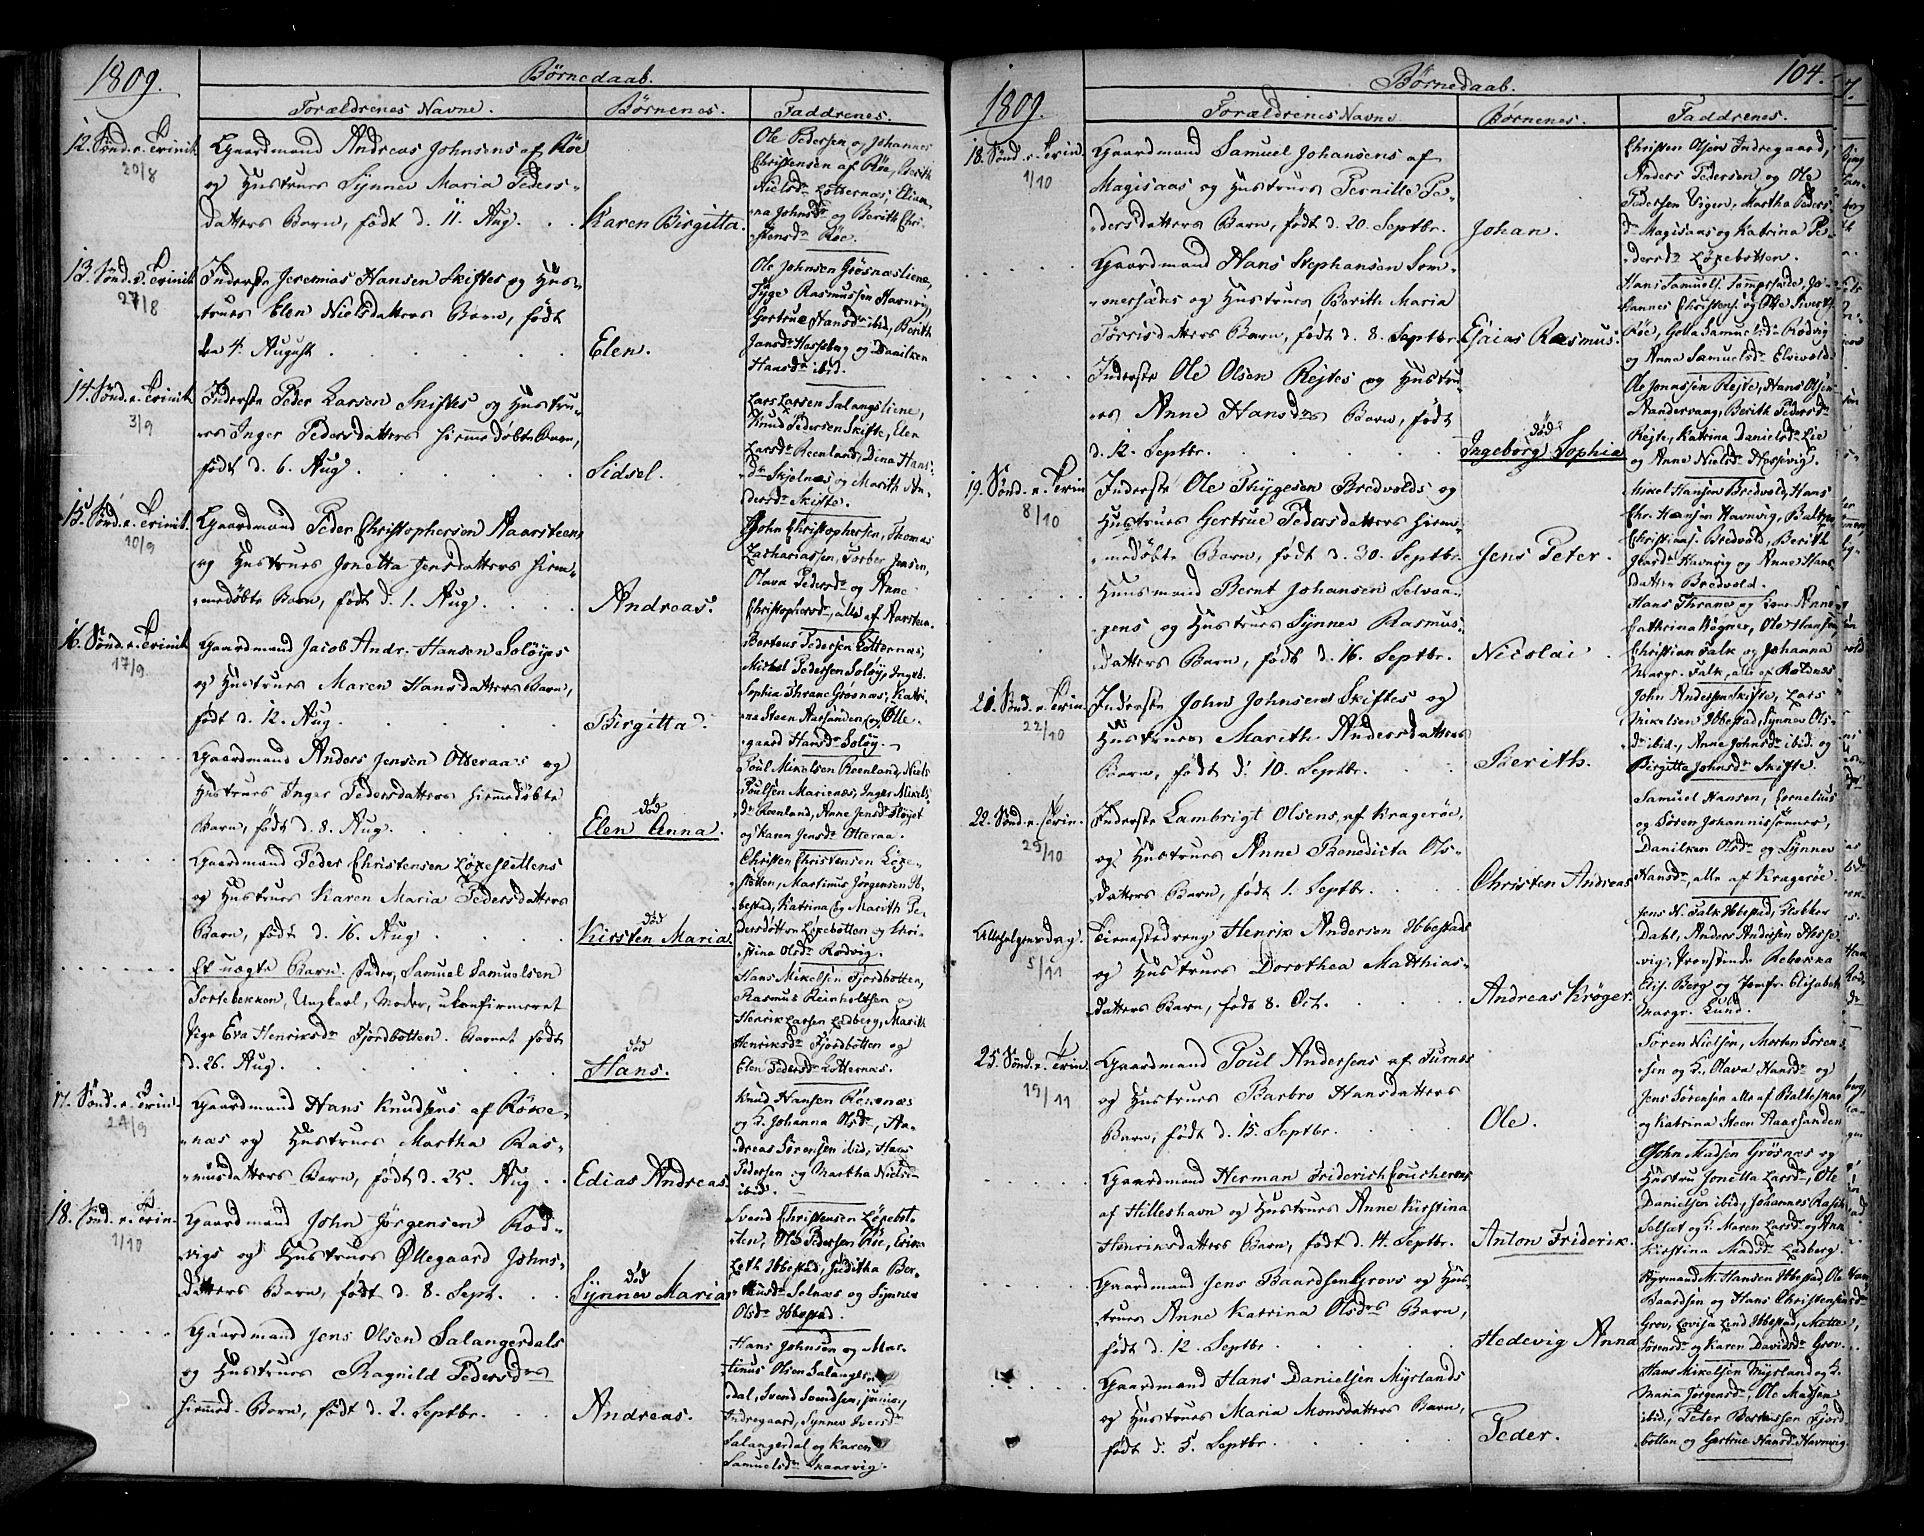 1809.
Børnedaab.
Forældrenes Navne.
Børnenes.
Faddrenes.
12. Sønd. e. Trinit.
20/8
Gaardmand Andreas Johnsens af Röe
og Hustrues Synnev Maria Peders-
datters Barn, født d. 11. Aug.
Karen Birgitta.
Ole Pedersen og Johannes
Christensen af Röe, Berith
Nielsdr Lotternæs, Elian-
na Johnsdr og Berith Chri-
stensdr Röe.
13. Sønd. e. Trinit.
27/8
Inderste Jeremias Hansen Skiftes og Hus-
trues Elen Nielsdatters Barn, født
den 4. August
Elen.
Ole Johnsen Grösnæsliene,
Tyge Rasmussen Havnvig,
Gertrue Hansdr ibid, Berith
Jansdr Hasseberg og Daaliken
Hansdr ibid.
14. Sønd. e. Trinit.
3/9
Inderste Peder Larsen Skiftes og Hustru-
es Inger Pedersdatters hiemmedøbte Barn,
født d. 6. Aug.
Sidsel.
Lars Larsen Salangsliene,
Knud Pedersen Skifte, Elen
Larsdr Reenland, Dina Hans-
dr Skjelnæs og Marith An-
dersdr Skifte.
15. Sønd. e. Trinit.
10/9
Gaardmand Peder Christophersen Aarsteens
og Hustrues Jonetta Jensdatters hiem-
medøbte Barn, født d. 1. Aug.
Andreas.
John Christophersen, Thomas
Zachariassen, Torber Jensen,
Olava Pedersdr og Anne
Christophersdr, alle af Aarsteen.
16. Sønd. e. Trinit.
17/9
Gaardmand Jacob Andr. Hansen Soløyes
og Hustrues Maren Hansdatters Barn,
født d. 12. Aug.
Birgitta.
Berteus Pedersen Lotternæs,
Mikkel Pedersen Soløy, Ingeb.
Sophia Thrane Grøsnæs, Katri-
na Steen Aarsanden og Olle-
gaard Hansdr Soløy.
Gaardmand Anders Jensen Otteraas og
Hustrues Inger Pedersdatters hiemmedøbte
Barn, født d. 8. Aug.
død
Elen Anna.
Poul Mikelsen Reenland, Niels
Poulsen Marienæs, Inger Mikels-
dr Reenland, Anne Jensdr Sløjet
og Karen Jensdr Otteraa.
Gaardmand Peder Christensen Løxeslettens
og Hustrues Karen Maria Pedersdatters
Barn, født d. 16. Aug
død
Kirsten Maria
Christen Christensen Løxe-
sletten, Martimus Jørgensen Ib-
bestad, Katrina og Marith Pe-
dersdøttre Løxebotten og Chri-
stina Olsdr Rodvig.
Et uægte Barn. Fader, Samuel Samuelsen
Sortebekken, Ungkarl, Moder, ukonfirmeret
Pige Eva Henriksdr Fjordbotten. Barnet født
d. 26. Aug.
død
Hans.
Hans Mikelsen Fjordbotten,
Rasmus Reinholtsen og
Henrik Larsen Ledberg, Marith
Henriksdr Fjordbotten og
Elen Pedersdr Lotternæs.
17. Sønd. e. Trin.
24/9
Gaardmand Hans Knudsens af Røxe-
næs og Hustrues Martha Ras-
musdatters Barn, født d. 25. Aug
Edias Andreas.
Knud Hansen Røxenæs
og H. Johanna Olsdr, An-
dreas Sørensen ibid, Hans
Pedersen og Martha Nielsd.
ibid.
18. Sønd. e. Trin.
1/10
Gaardmand John Jørgensen Rod-
vigs og Hustrues Øllegaard Johns-
datters Barn, født d. 8. Sept.
død
Synnev Maria
Svend Christensen Løxebot-
ten, Ole Pedersen Röe, Erik
Leth Ibbestad, Juditha Ber-
theusdr Selnæs og Synnev
Olsdr Ibbestad.
Gaardmand Jens Olsen Salangerdals
og Hustrues Ragnild Pedersdrs
hiemmed. Barn, født d. 2. Septbr.
Andreas.
Hans Johnsen og Mar-
tinus Olsen Salanger-
dal, Svend Svendsen, junior,
Indregaard, Synnev Iversdr
Salangerdal og Karen
Samuelsdr Skaarvig.
1809.
Børnedaab.
104.
Forældrenes Navne
Børnenes.
Faddrenes.
18. Sønd. e. Trin.
1/10
Gaardmand Samuel Johansens af
Magisaas og Hustrues Pernille Pe-
dersdatters Barn, født d. 20. Septbr.
Johan.
Christen Olsen Indregaard,
Anders Pedersen og Ole
Pedersen Vigen, Martha Peders-
dr Magisaas og Katrina Pe-
dersdr Løxebotten.
Gaardmand Hans Stephansen Som-
mersædes og Hustrues Berith Maria
Torrisdatters Barn, født d. 8. Septbr.
Esaias Rasmus.
Hans Samuels. Sompsæde, Jo-
hannes Christens. og Ole Siverts.
Röe, Golla Samuelsdr Rodvig
og Anne Samuelsdr Elvevold
Inderste Ole Olsen Rejtes og Hustru-
es Anne Hansdrs Barn, født
d. 12. Septbr.
død
Ingeborg Sophia
Ole Jonassen Rejte, Hans Olsen
Nandervaag, Berith Pedersdr
Rejte, Katrina Danielsdr Lie
og Anne Nielsdr Hessevig.
19. Sønd. e. Trin
8/10
Inderste Ole Thygesen Bredvolds og
Hustrues Gertrue Pedersdatters hiem-
medøbte Barn, født d. 30. Septbr.
Jens Peter.
Mikel Hansen Bredvold, Hans
Chr. Hansen Havnvig, Baltzer
Christians. Bredvold, Berith
Havnvig og Anne Hans
datter Bredvold.
Huusmand Bernt Johansen Selvaa-
gens og Hustrues Synnev Rasmus-
datters Barn, født d. 16. Septbr.
Nicolai
Hans Thrane og Anne
Cathrina Wagner, Ole Hansen,
Christian Falk og Johanna
Margr. Falk, alle af Rotnæs
21. Sønd. e. Trin.
22/10
Inderste John Johnsen Skiftes og
Hustrues Marith Andersdatters
Barn, født d. 10. Septbr.
Berith.
John Andersen Skifte, Lars
Mikelsen Ibbestad, Synnev Ols-
dr ibid., Anne Johnsdr ibid. og
Birgitta Johnsdr Skifte.
22. Sønd. e. Trin.
29/10
Inderste Lambrigt Olsens, af Kragerøe,
og Hustrues Anne Baenedicta Ols-
datters Barn, født 1. Septbr.
Christen Andreas
Samuel Hansen, Cornelius
og Søren Johannissønner,
Daniken Olsdr og Synnev
Hansdr, alle af Kragerøe
Allehelgensdag.
5/11
Tienestedreng Henrik Andersen Ibbestads
og Hustrues Dorothea Matthias-
datters Barn, født 8. Oct.
Andreas Krøger.
Jens H. Falk Ibbestad, Klokker
Dahl, Anders Andersen Hesse-
vig, Provstinde Rebekka
Elis. Berg og Jomfr. Elisabeth
Margr. Lund.
25. Sønd. e. Trin.
19/11
Gaardmand Poul Andersens af Furnæs
og Hustrues Barbro Hansdatters
Barn, født d. 15. Septbr.
Ole.
Søren Nielsen, Morten Sørens-
sen og H. Olava Hansdr og
Jens Sørensen alle af Balteskar
og Katrina Steen Aaarsanden
Gaardmand Herman Friderich Coucherons
af Hilleshavn og Hustrues Anne Kirstina
Henriksdatters Barn, født d. 14. Septbr.
Anton Friderik.
John Madsen Grøsnæs og
Hustru Jonetta Larsdr, Ole
Danielsen ibid, Johannes Rasch
Selsæt og H. Maren Larsdr og Ann
Kirstina Madsdr Ledberg.
Gaardmand Jens Baardsen Grovs og Hus-
trues Anne Katrina Olsdrs Barn,
født d. 12. Septbr.
Hedevig Anna
Styrmand M. Hansen Ibbestad, Ole
Baardsen og Hans Christensen
Grov, Lovisa Lind Ibbestad, Mette
Sørensdr og Karen Davidsdr Grov.
Gaardmand Hans Danielsen Myrlands
og Hustrues Maria Monsdatters Barn,
født d. 5. Septbr.
Peder.
Hans Mikelsen Myrland og H.
Maria Jørgensdr. Ole Madsen
ibid., Peter Berteussen Fjord-
botten og Gertrue Hansdr Havnvig.